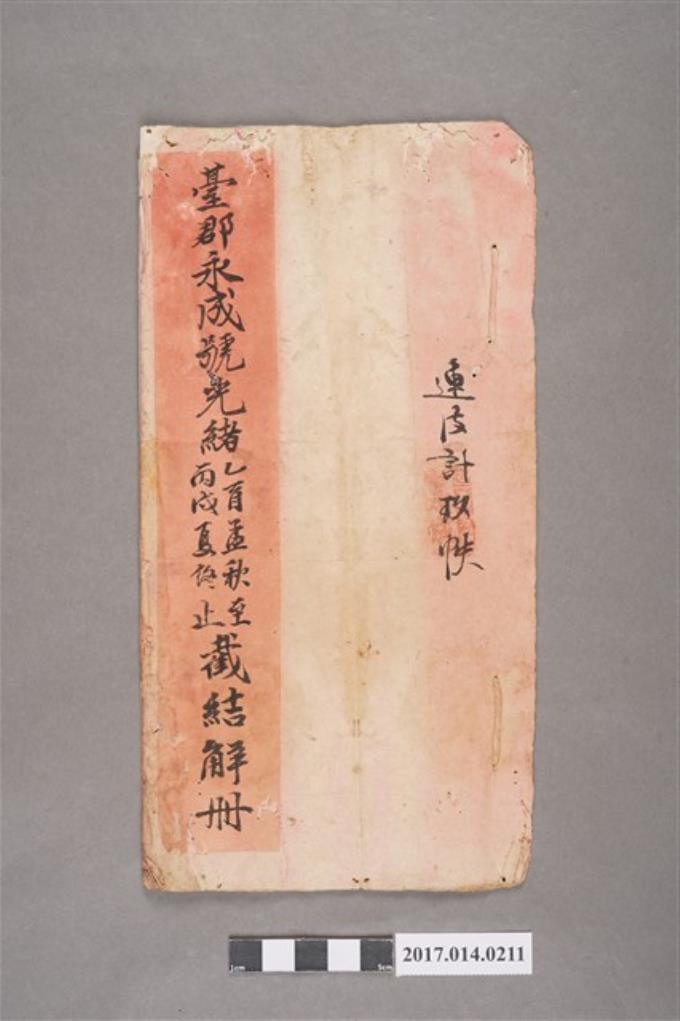 連皮計玖帙
臺郡永成號光緒
乙酉孟秋至
丙戌夏終止
截結觧冊
1cm 5cm
2017.014.0211